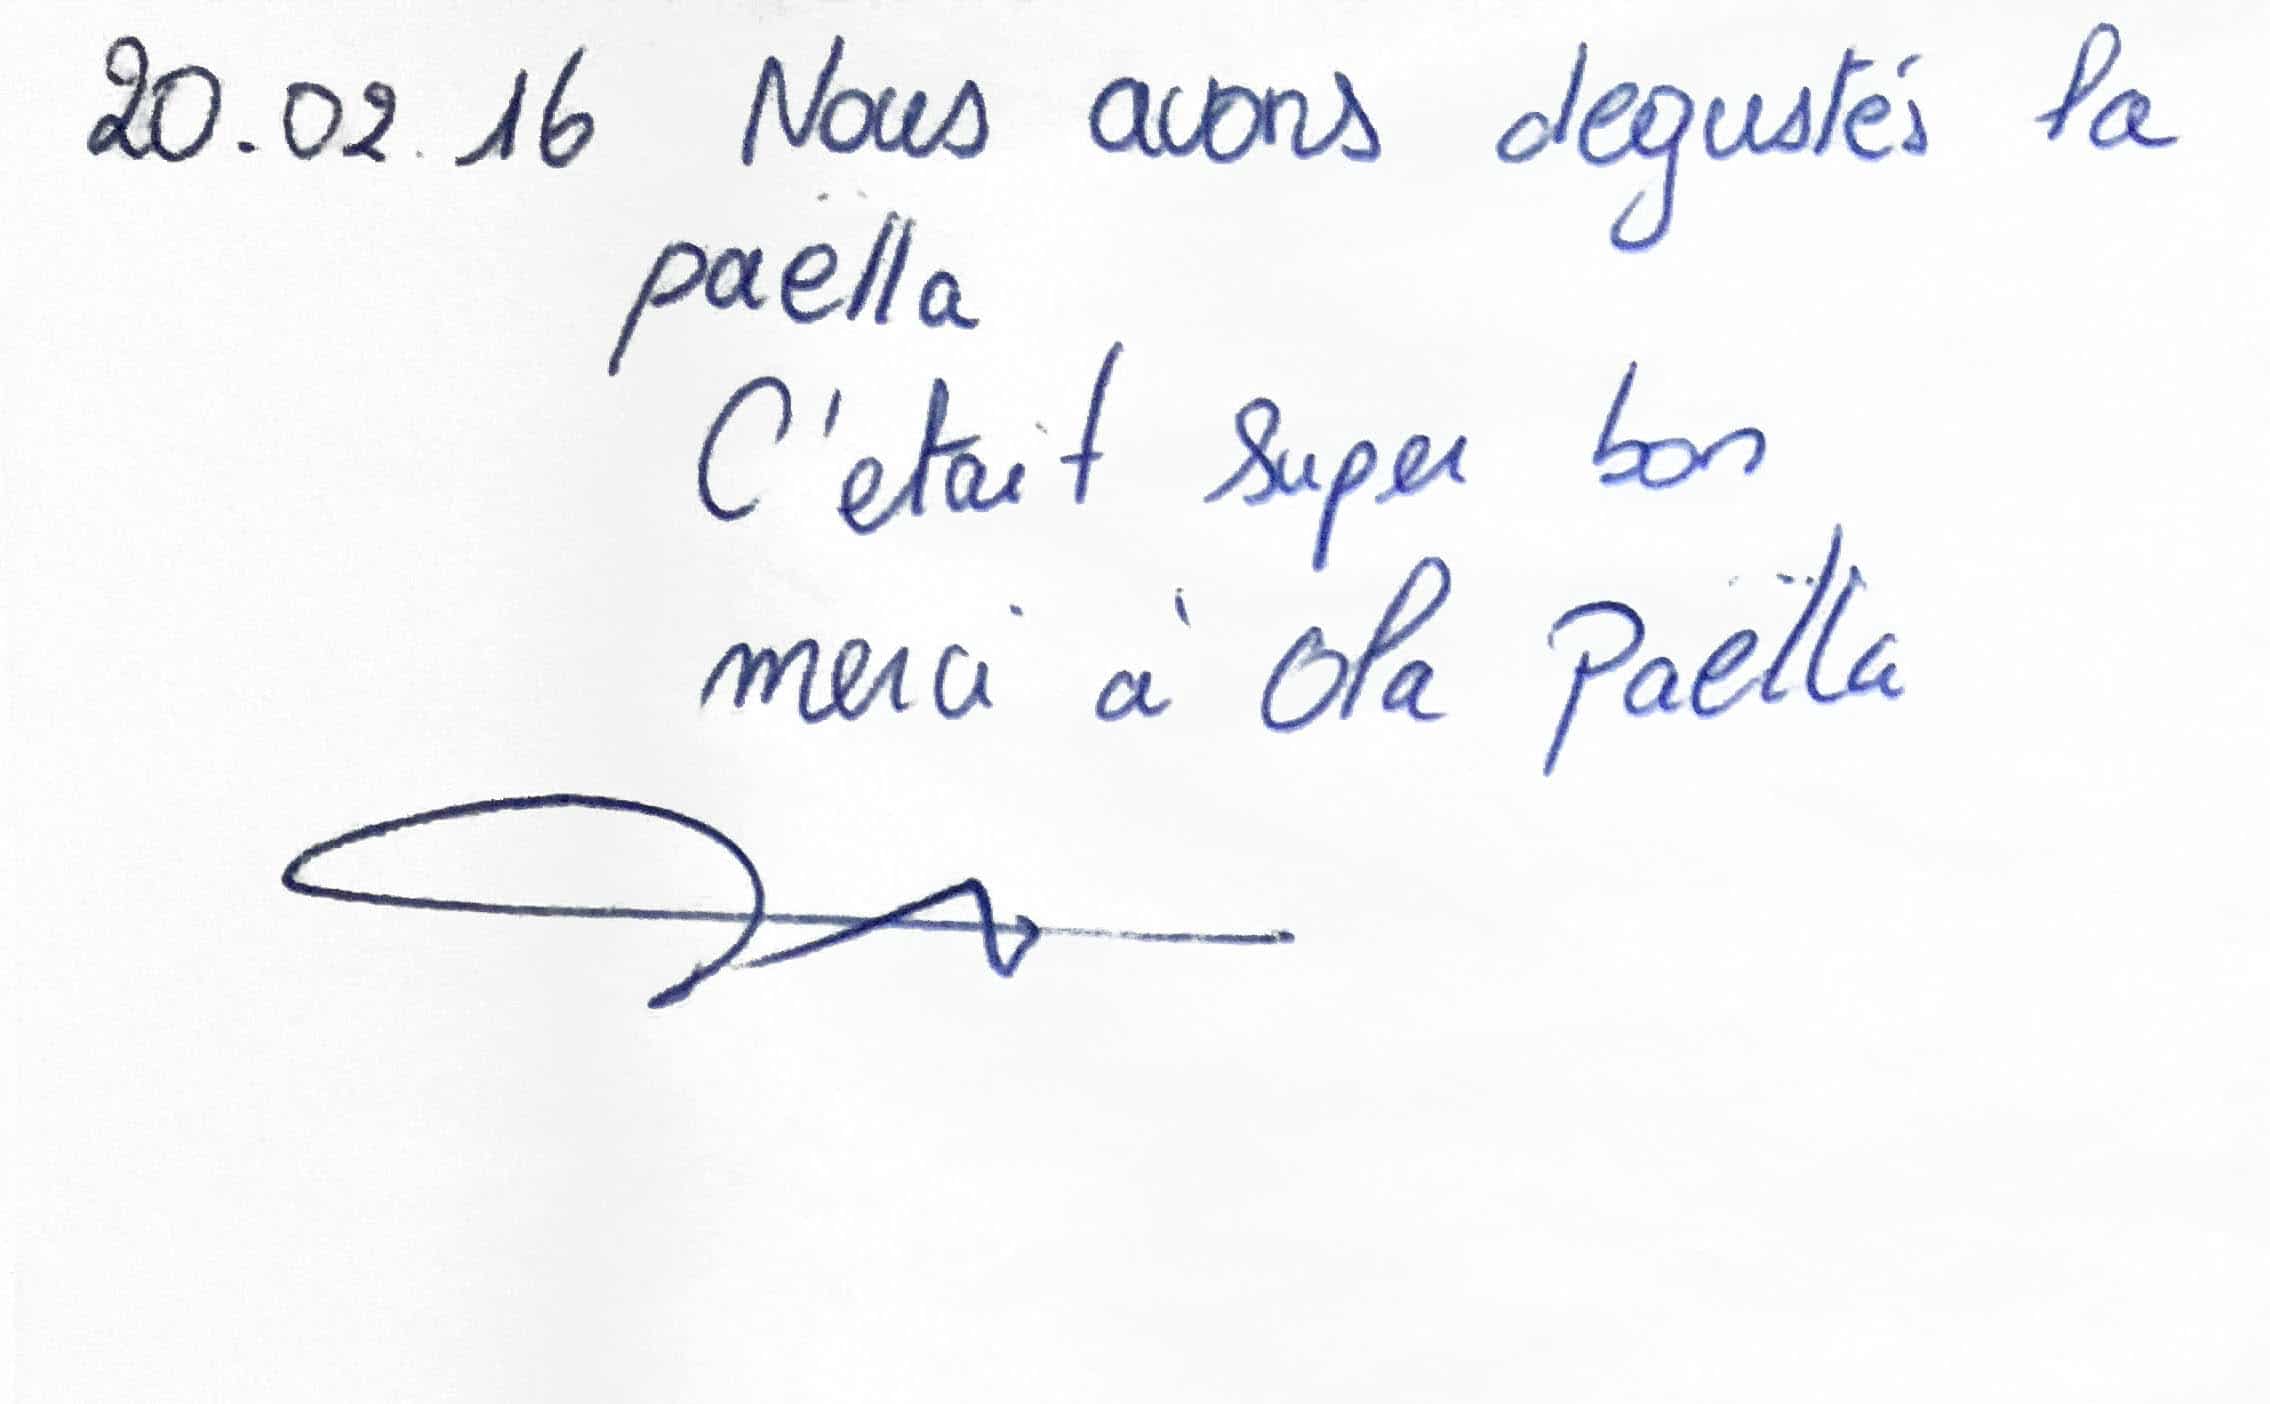 20.02.16 Nous avons degustés la
paëlla
C'etait super bon
merci à Ola Paëlla